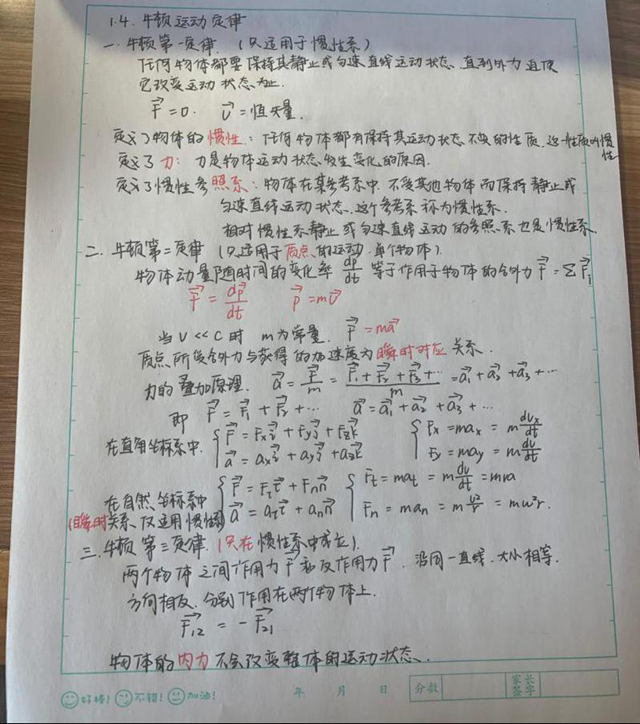 1.4. 牛顿运动定律
一. 牛顿第一定律. (只适用于惯性系)
任何物体都要保持其静止或匀速直线运动状态, 直到外力迫使
它改变运动状态为止.
F⃗=0. v⃗=恒矢量.
定义了物体的惯性: 任何物体都有保持其运动状态不变的性质, 这一性质叫惯性
定义了力: 力是物体运动状态发生变化的原因.
定义了惯性参照系: 物体在某参考系中, 不受其他物体而保持静止或
匀速直线运动状态, 这个参考系称为惯性系.
相对惯性系静止或匀速直线运动的参照系也是惯性系.
二. 牛顿第二定律 (只适用于质点的运动, 单个物体).
物体动量随时间的变化率 dp⃗/dt 等于作用于物体的合外力 F⃗=ΣF⃗i
F⃗=dp⃗/dt p⃗=mv⃗
当 V<<C 时 m为常量. F⃗=ma⃗
质点所受合外力与获得的加速度为瞬时对应关系.
力的叠加原理. a⃗=F⃗/m=(F⃗1+F⃗2+F⃗3+…)/m=a⃗1+a⃗2+a⃗3+…
即 F⃗=F⃗1+F⃗2+… a⃗=a⃗1+a⃗2+a⃗3+…
在直角坐标系中. { F⃗=Fxi⃗+Fyj⃗+Fzk⃗ { Fx=max=m dvx/dt
a⃗=axi⃗+ayj⃗+azk⃗ Fy=may=m dv/dt
在自然坐标系中 { F⃗=Ftt⃗+Fnn⃗ { Ft=mat=m dv/dt=mrα
(瞬时关系, 仅适用惯性系) a⃗=att⃗+ann⃗ Fn=man=m v²/r=mω²r.
三. 牛顿第三定律. (只在惯性系中成立).
两个物体之间作用力F⃗和反作用力F⃗, 沿同一直线, 大小相等.
方向相反, 分别作用在两个物体上.
F⃗12=-F⃗21
物体的内力不会改变整体的运动状态.
好棒! 不错! 加油! 年 月 日 分数 家长签字